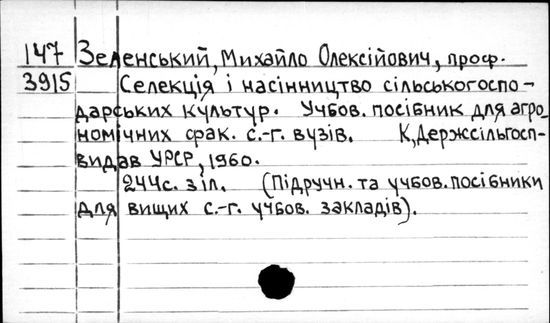 147 Зеленський, Михайло Олексійович, проф.
3915 Селекція і насінництво сільськогоспо-
дарських культур. Учбов. посібник для агро
номічних фак. с.-г. вузів. К, Держсільгосп-
видав УРСР, 1960.
244с. з іл. (Підручн. та учбов. посібники
для вищих с.-г. учбов. закладів).